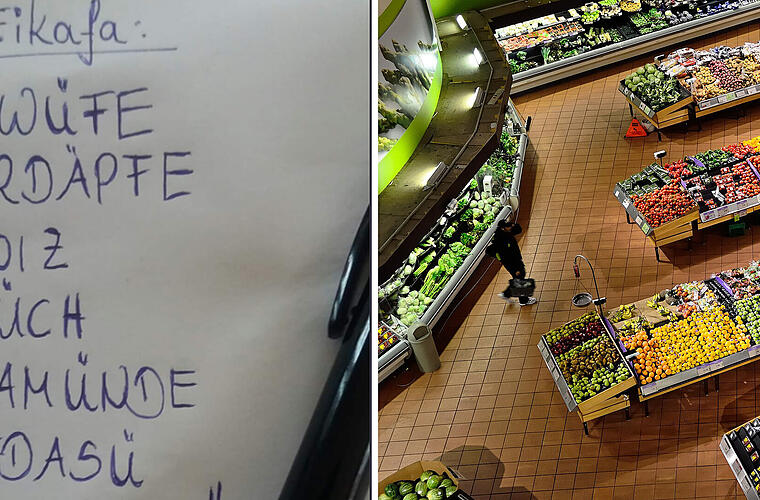 Eikafa:
WÜFE
RDÄPFE
OIZ
ÜCH
AMÜNDE
DASÜ